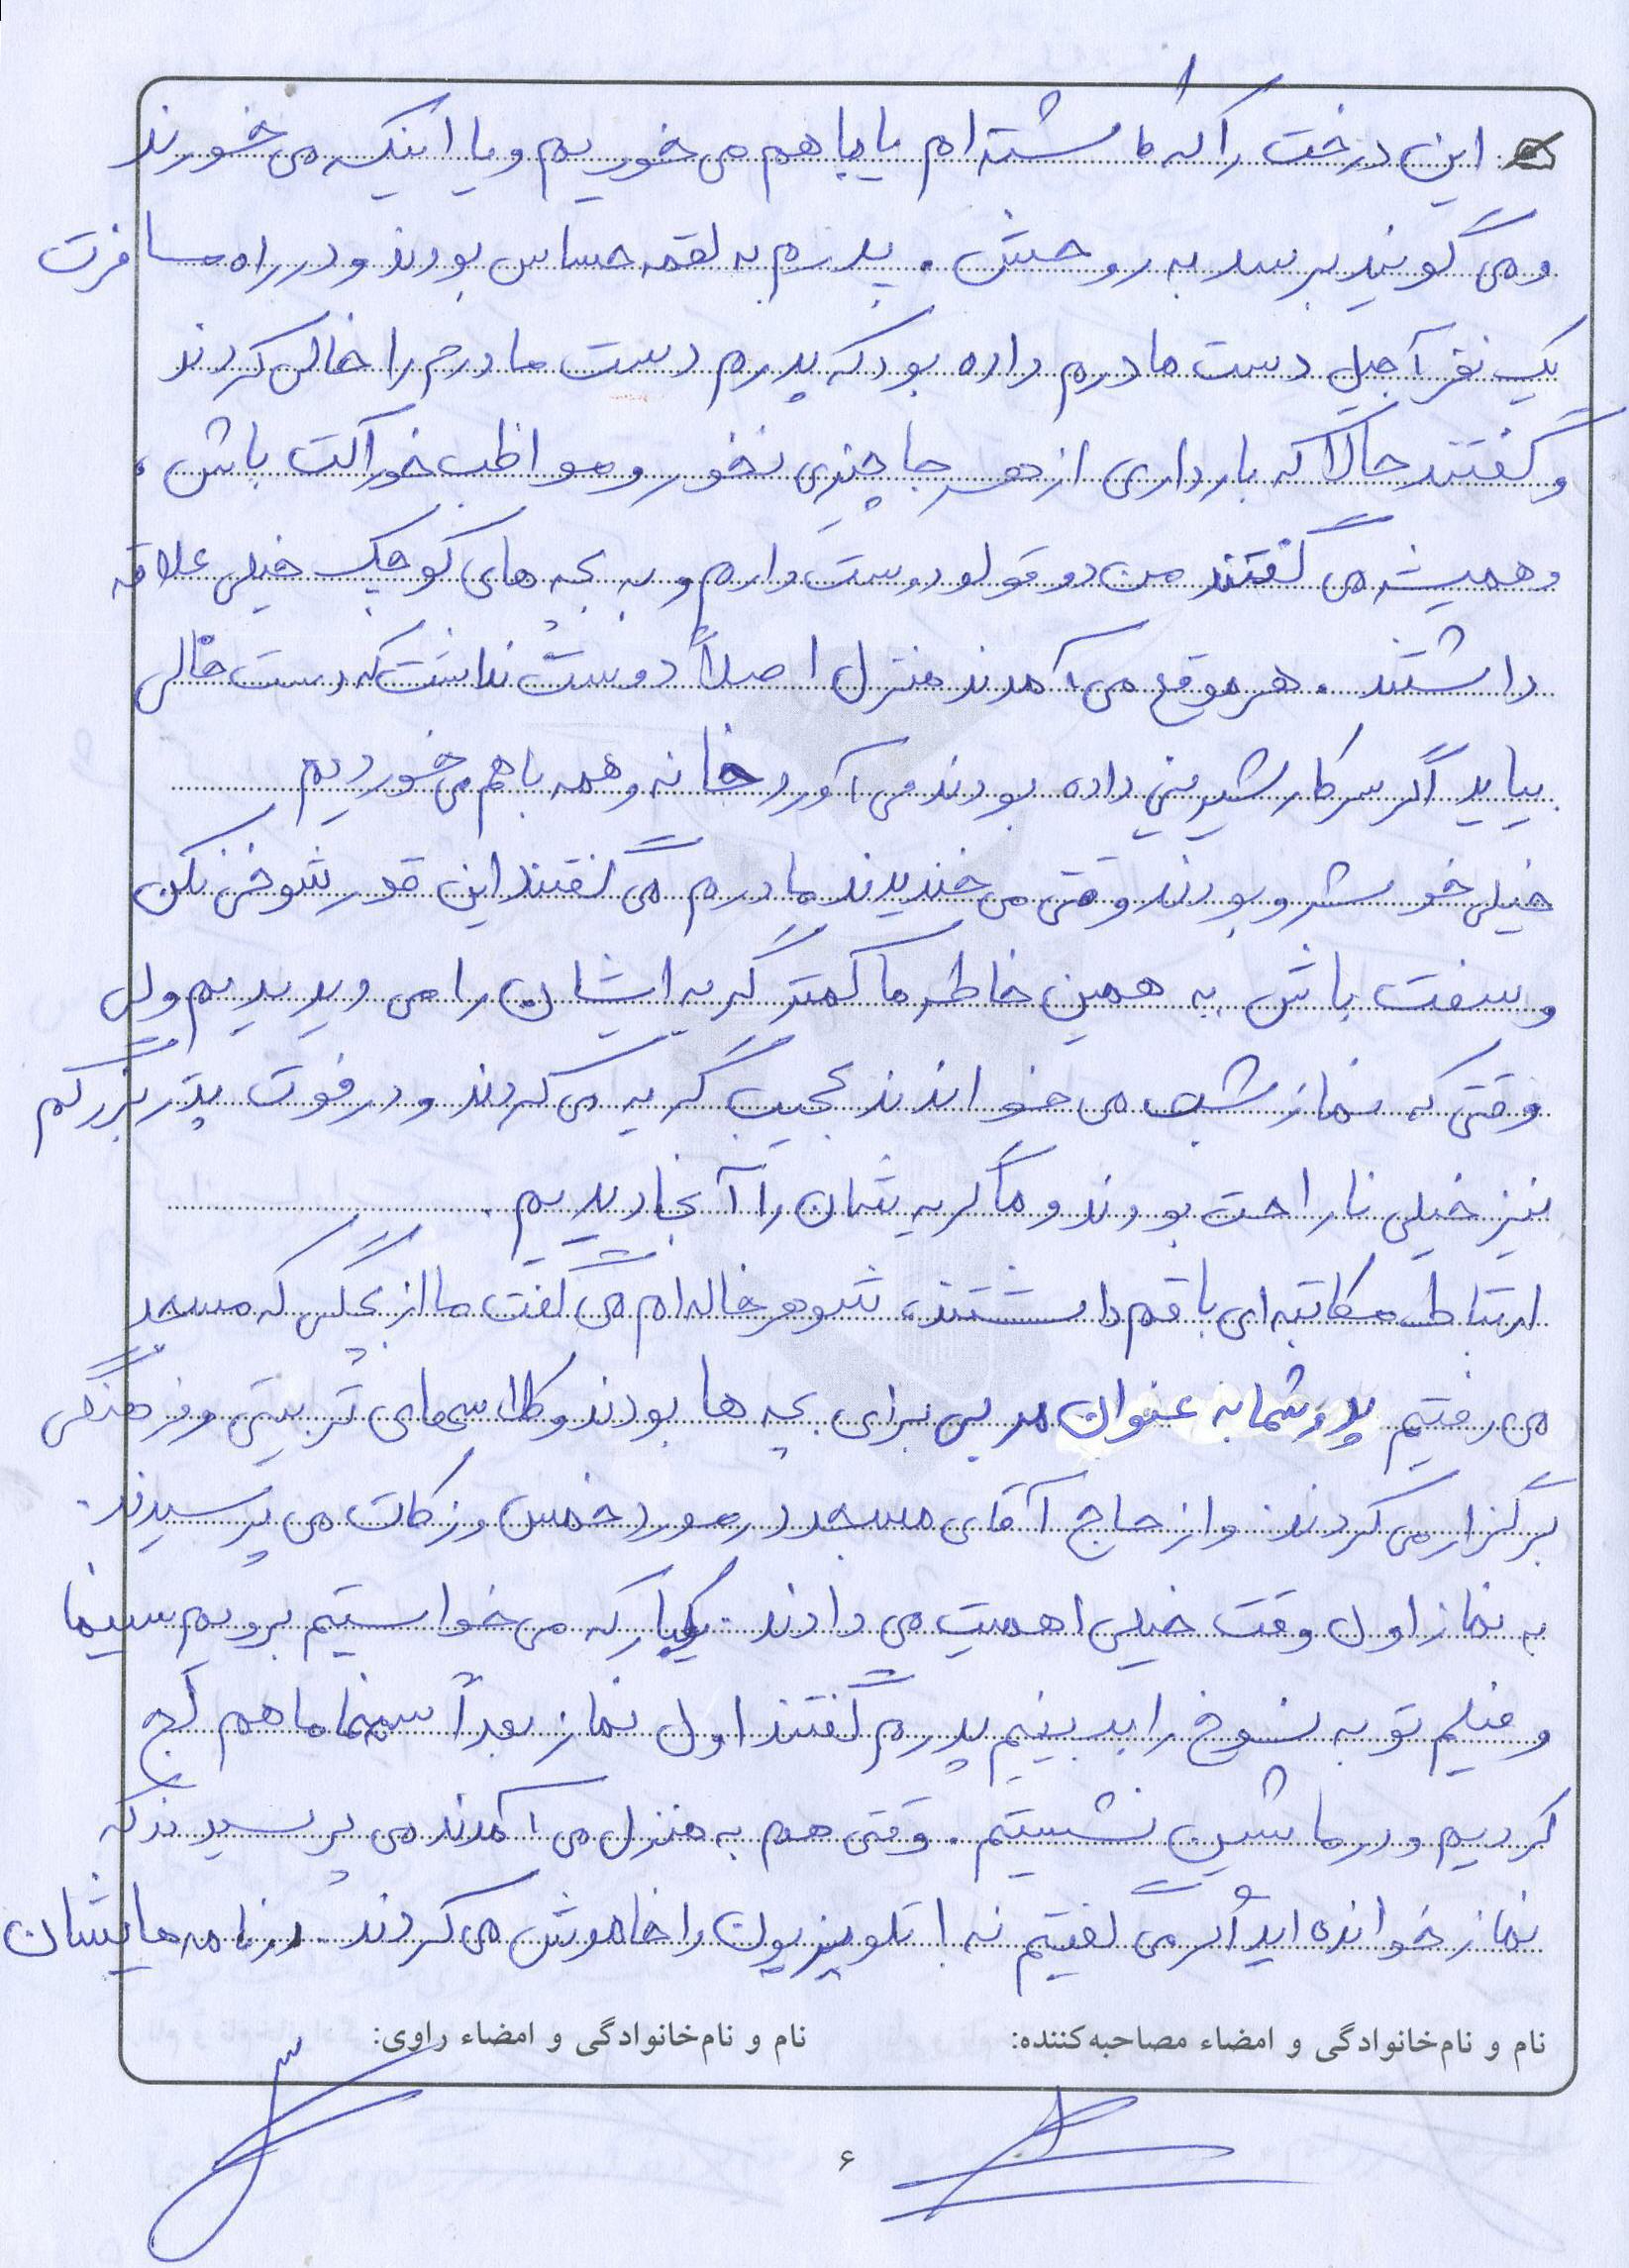 این درخت را که کاشته‌ام یا با هم می خوریم و یا اینکه می خورند
و می گویند برسد به روحش . پدرم به لقمه حساس بودند و در راه مسافرت
یک نفر آجیل دست مادرم داده بود که پدرم دست مادرم را خالی کردند
و گفتند حالا که بارداری از هر جا چیزی نخور و مواظب خوراکت باش ،
و همیشه می گفتند من دوقولو دوست دارم و به بچه های کوچک خیلی علاقه
داشتند . هر موقع می آمدند منزل اصلاً دوست نداشت که دست خالی
بیاید اگر سر کار شیرینی داده بودند می آورد خانه و همه با هم می خوردیم
خیلی خوشرو بودند وقتی می خندیدند مادرم می گفتند این قدر شوخی نکن
و سفت باش به همین خاطر ما کمتر گریه ایشان را می دیدیم ولی
وقتی که نماز شب می خواندند عجیب گریه می کردند و در فوت پدربزرگم
نیز خیلی ناراحت بودند و ما گریه شان را آنجا دیدیم .
ارتباط مکاتبه ای با قم داشتند، شوهر خاله ام می گفت ما از بچگی که مسجد
می رفتیم پدر شما به عنوان مربی برای بچه ها بودند و کلاسهای تربیتی و فرهنگی
برگزار می کردند و از حاج آقای مسجد در مورد خمس و زکات می پرسیدند.
به نماز اول وقت خیلی اهمیت می دادند . یکبار که می خواستیم برویم سینما
و فیلم توبه نسوخ را ببینیم پدرم گفتند اول نماز بعداً سینما ما هم لج
کردیم و در ماشین نشستیم . وقتی هم به منزل می آمدند می پرسیدند که
نماز خوانده اید اگر می گفتیم نه ! تلویزیون را خاموش می کردند . هایشان
نام و نام‌خانوادگی و امضاء مصاحبه‌کننده: نام و نام‌خانوادگی و امضاء راوی:
۶